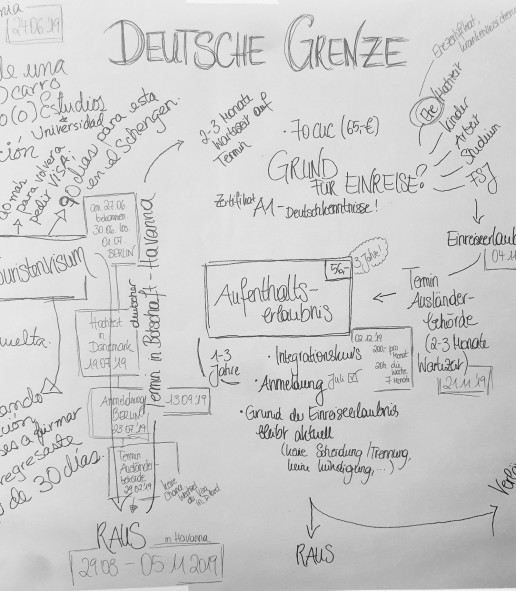 DEUTSCHE GRENZE
24.06.19
de una
carro
Estudios
Universidad
90 días para esta
en el Schengen.
para volver a
pedir VISA
2-3 Monate
Wartezeit auf
Termin
• 70 CUC (65,-€)
GRUND
FÜR EINREISE?
Zertifikat
A1 - Deutschkenntnisse!
Ehe
Hochzeit
Kinder
Arbeit
Studium
FSJ
Einreiseerlaub
04.11
Termin
Ausländer-
behörde
(2-3 Monate
Wartezeit)
21.11.19
56,-
3 Jahre
Aufenthalts-
erlaubnis
1-3
Jahre
• Integrationskurs
• Anmeldung Juli
• Grund der Einreiseerlaubnis
bleibt aktuell
(keine Scheidung/Trennung,
keine Kündigung, ...)
02.12.19
200,- pro
Monat
20h die
Woche
7 Monate
am 27.06
bekommen
30.06. los
01.07.
BERLIN
Termin in deutscher Botschaft - Havanna
Hochzeit
in
Dänemark
19.07.19
Anmeldung
BERLIN
23.07.19
13.09.19
Termin
Ausländer-
behörde
RAUS in Havanna
29.08 - 05.11.2019
vuelta.
firmar
regresaste
de 30 días.
RAUS